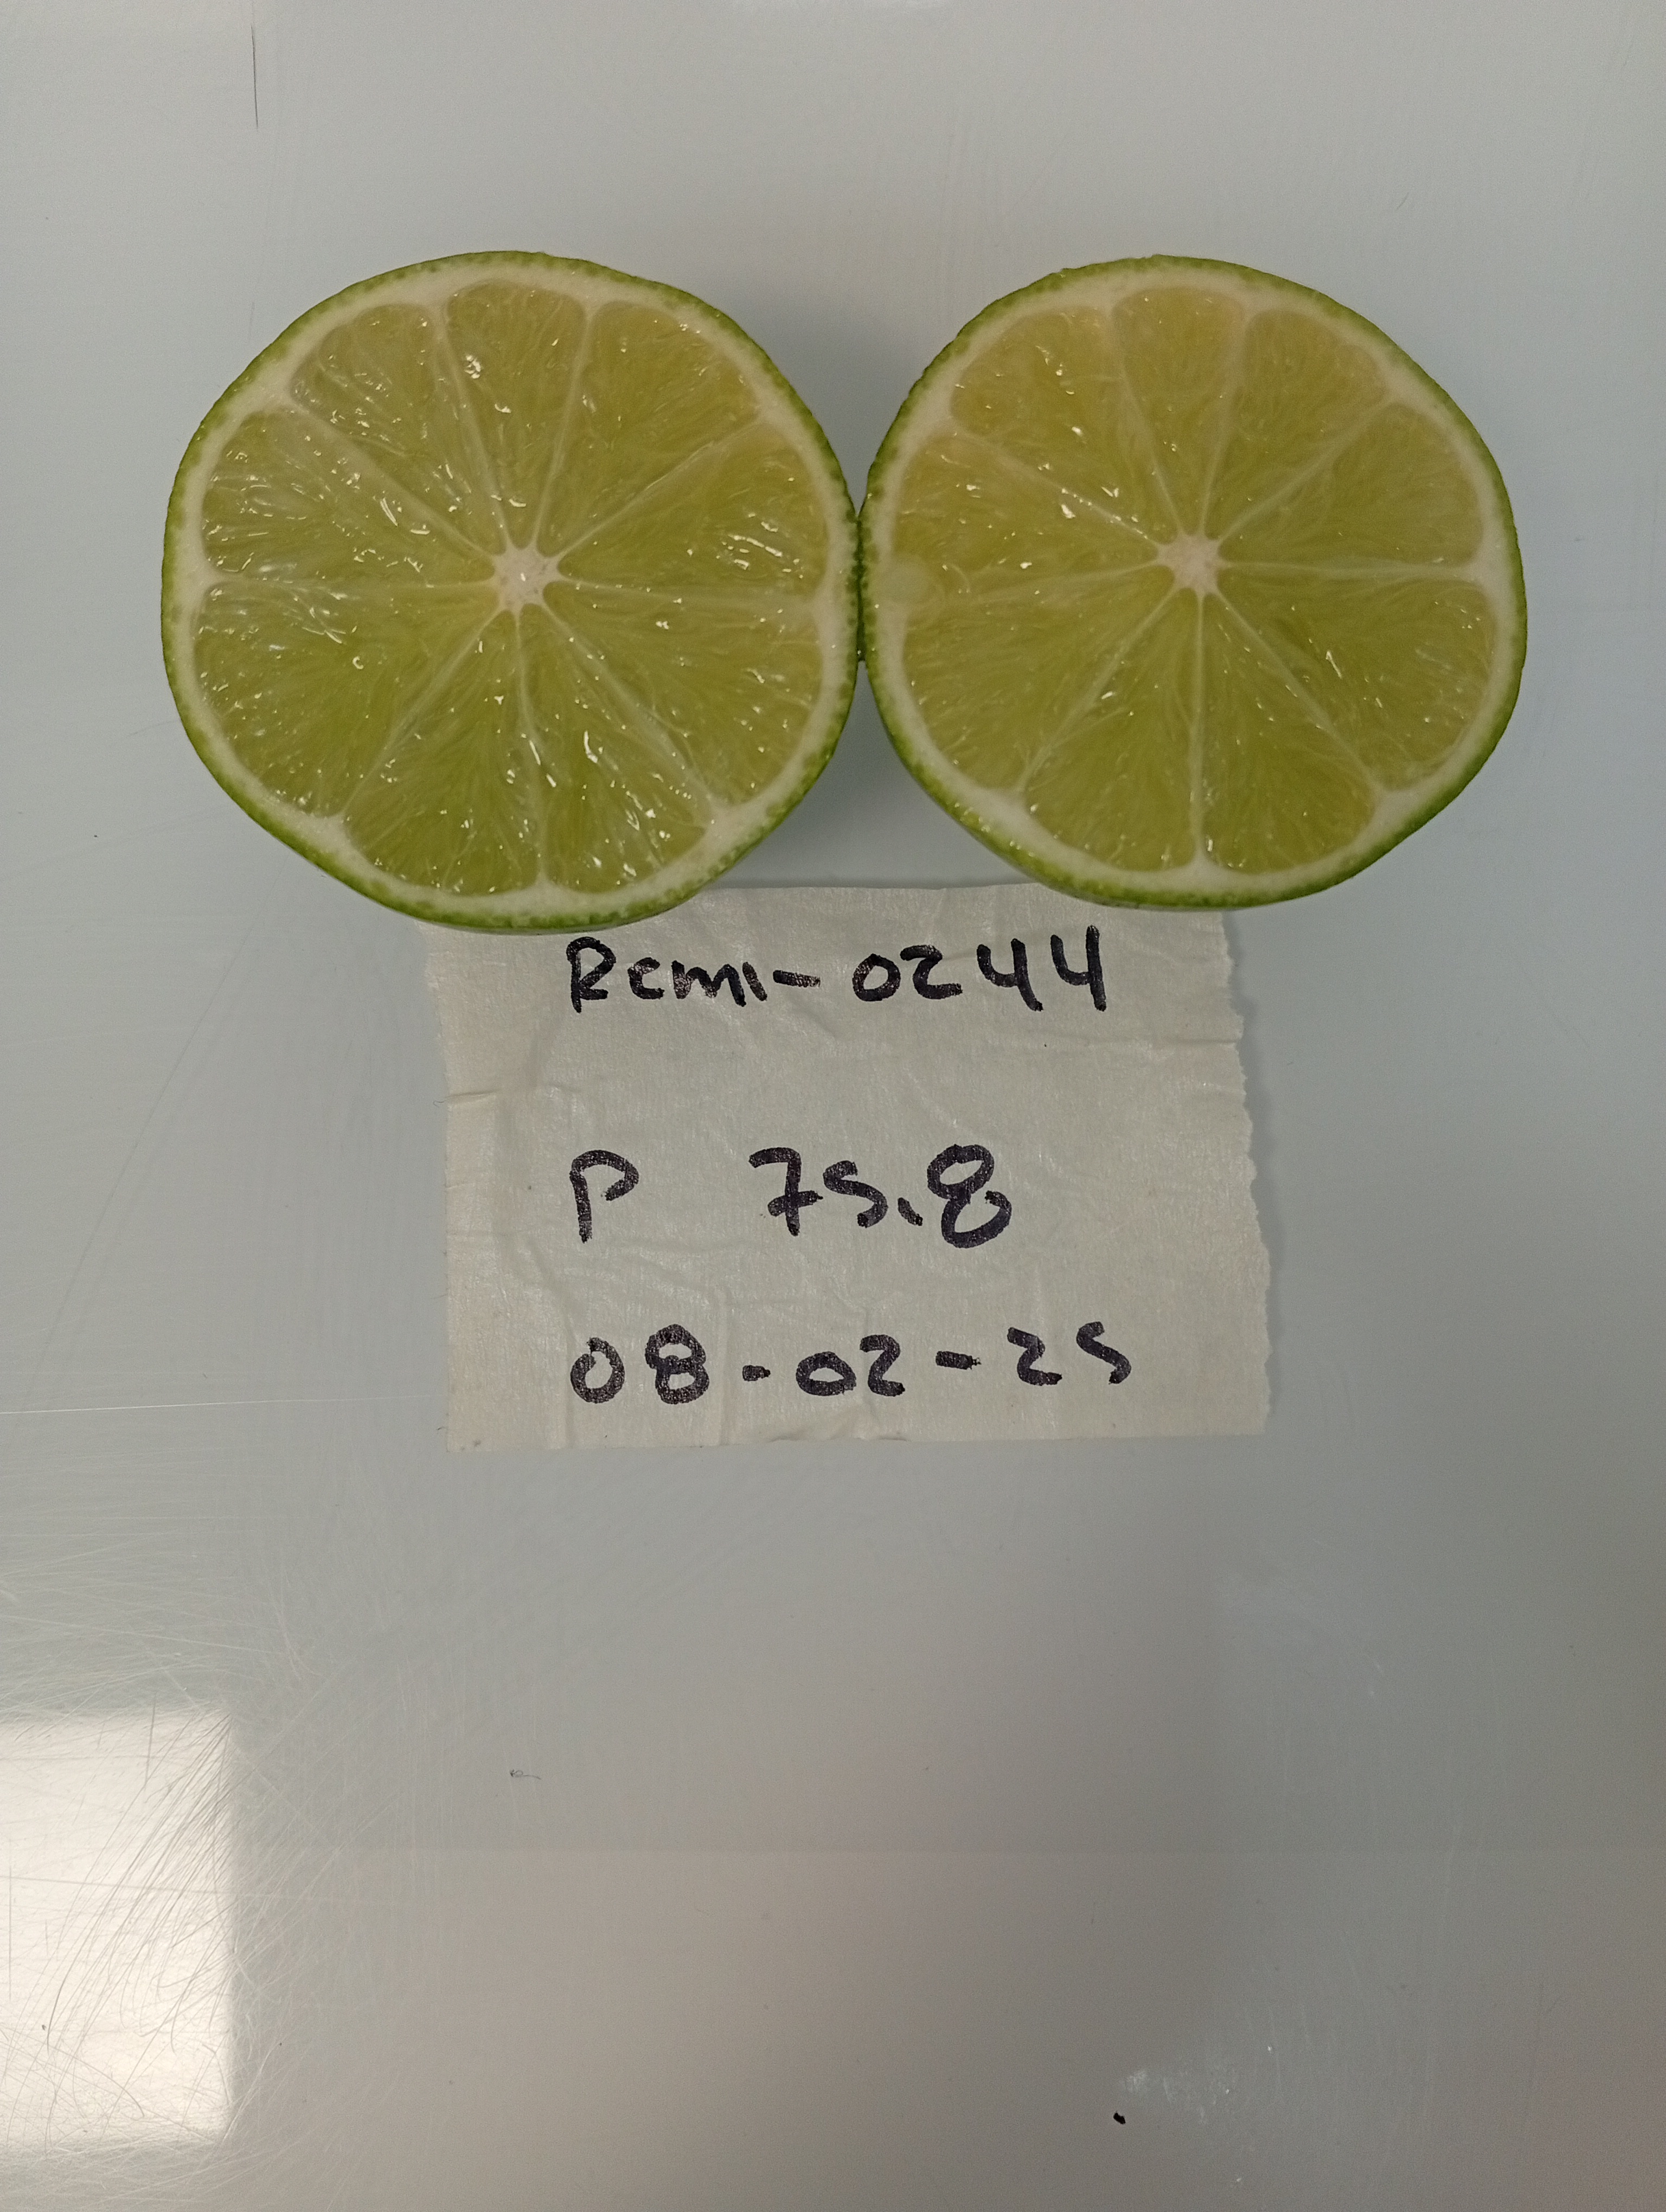 Remi-0244
P 75.8
08-02-25